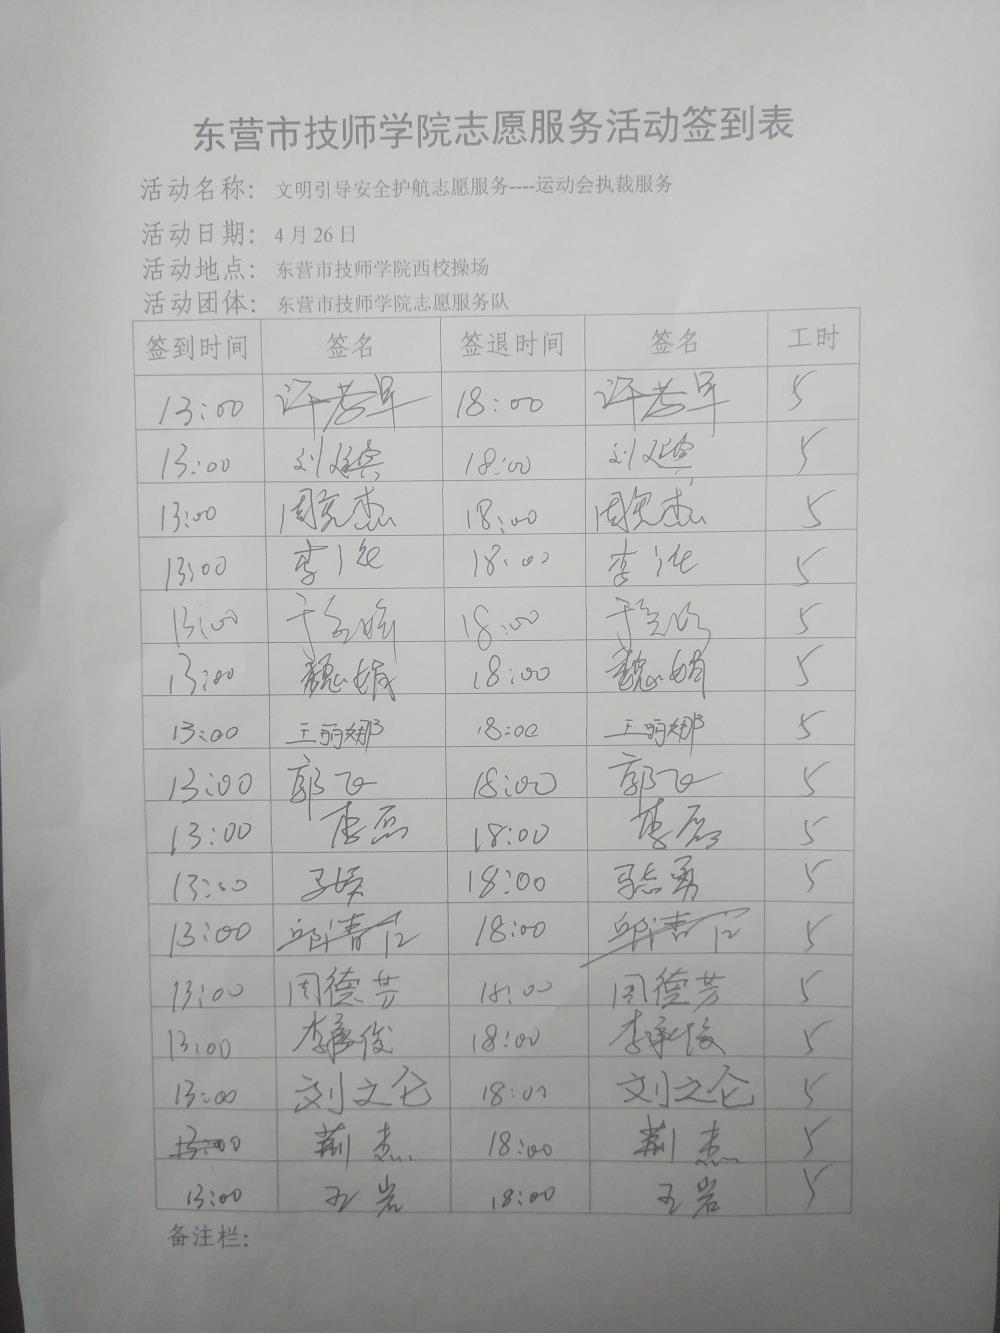 东营市技师学院志愿服务活动签到表
活动名称： 文明引导安全护航志愿服务----运动会执裁服务
活动日期： 4月26日
活动地点： 东营市技师学院西校操场
活动团体： 东营市技师学院志愿服务队
签到时间 签名 签退时间 签名 工时
13:00 18:00 5
13:00 18:00 5
13:00 周克杰 18:00 周克杰 5
13:00 18:00 5
13:00 18:00 5
13:00 魏娟 18:00 魏娟 5
13:00 王丽娜 18:00 王丽娜 5
13:00 郭飞 18:00 郭飞 5
13:00 李磊 18:00 李磊 5
13:00 18:00 5
13:00 18:00 5
13:00 周德芳 18:00 周德芳 5
13:00 李承俊 18:00 李承俊 5
13:00 刘文仑 18:00 刘文仑 5
13:00 荆杰 18:00 荆杰 5
13:00 王岩 18:00 王岩 5
备注栏：